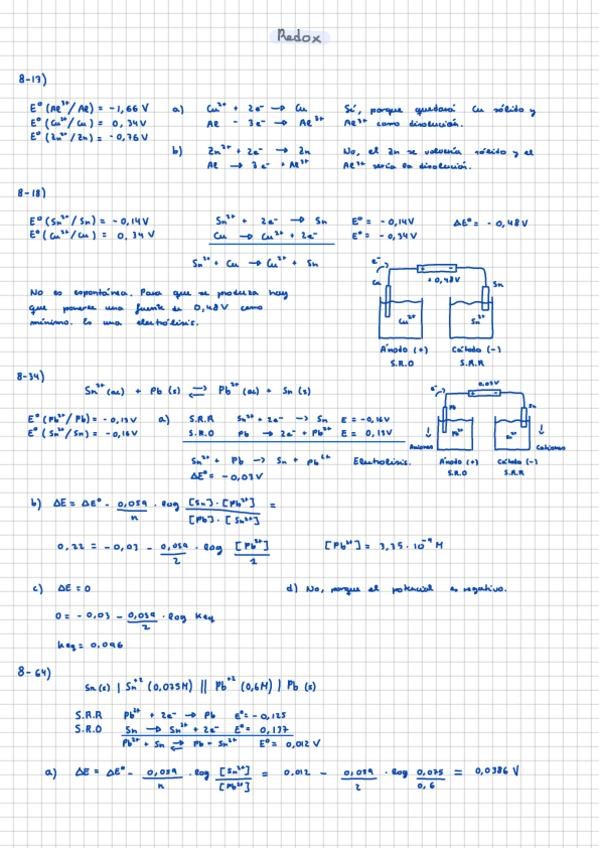 Redox
8-17)
E° (Al³⁺/Al) = -1,66 V
E° (Cu²⁺/Cu) = 0,34 V
E° (Zn²⁺/Zn) = -0,76 V
a) Cu²⁺ + 2e⁻ → Cu
Al - 3e⁻ → Al³⁺
Sí, porque quedará Cu sólido y
Al³⁺ como disolución.
b) Zn²⁺ + 2e⁻ → Zn
Al → 3e⁻ + Al³⁺
No, el Zn se volvería sólido y el
Al³⁺ sería la disolución.
8-18)
E° (Sn²⁺/Sn) = -0,14V
E° (Cu²⁺/Cu) = 0,34 V
Sn²⁺ + 2e⁻ → Sn E° = -0,14V ΔE° = -0,48V
Cu → Cu²⁺ + 2e⁻ E° = -0,34V
Sn²⁺ + Cu → Cu²⁺ + Sn
No es espontánea. Para que se produzca hay
que ponerle una fuente de 0,48V como
mínimo. Es una electrólisis.
e⁻
+0,48V
Cu
Sn
Cu²⁺
Sn²⁺
Ánodo (+)
S.R.O
Cátodo (-)
S.R.R
8-34)
Sn²⁺(ac) + Pb (s) ⇌ Pb²⁺(ac) + Sn (s)
E° (Pb²⁺/Pb) = -0,13V
E° (Sn²⁺/Sn) = -0,16V
a) S.R.R Sn²⁺ + 2e⁻ → Sn E = -0,16V
S.R.O Pb → 2e⁻ + Pb²⁺ E = 0,13V
Sn²⁺ + Pb → Sn + Pb²⁺ Electrólisis.
ΔE° = -0,03V
0,03V
e⁻
Pb
Sn
Pb²⁺
Sn²⁺
Aniones
Cationes
Ánodo (+)
S.R.O
Cátodo (-)
S.R.R
b) ΔE = ΔE° - 0,059/n · log [Sn]·[Pb²⁺]/[Pb]·[Sn²⁺] =
0,22 = -0,03 - 0,059/2 · log [Pb²⁺]/1 [Pb²⁺] = 3,35·10⁻⁹ M
c) ΔE = 0
0 = -0,03 - 0,059/2 · log Keq
Keq = 0,096
d) No, porque el potencial es negativo.
8-64)
Sn(s) | Sn⁺² (0,075M) || Pb⁺² (0,6M) | Pb (s)
S.R.R Pb²⁺ + 2e⁻ → Pb E° = -0,125
S.R.O Sn → Sn²⁺ + 2e⁻ E° = 0,137
Pb²⁺ + Sn ⇌ Pb - Sn²⁺ E° = 0,012 V
a) ΔE = ΔE° - 0,059/n · log [Sn²⁺]/[Pb²⁺] = 0.012 - 0,059/2 · log 0,075/0,6 = 0,0386 V